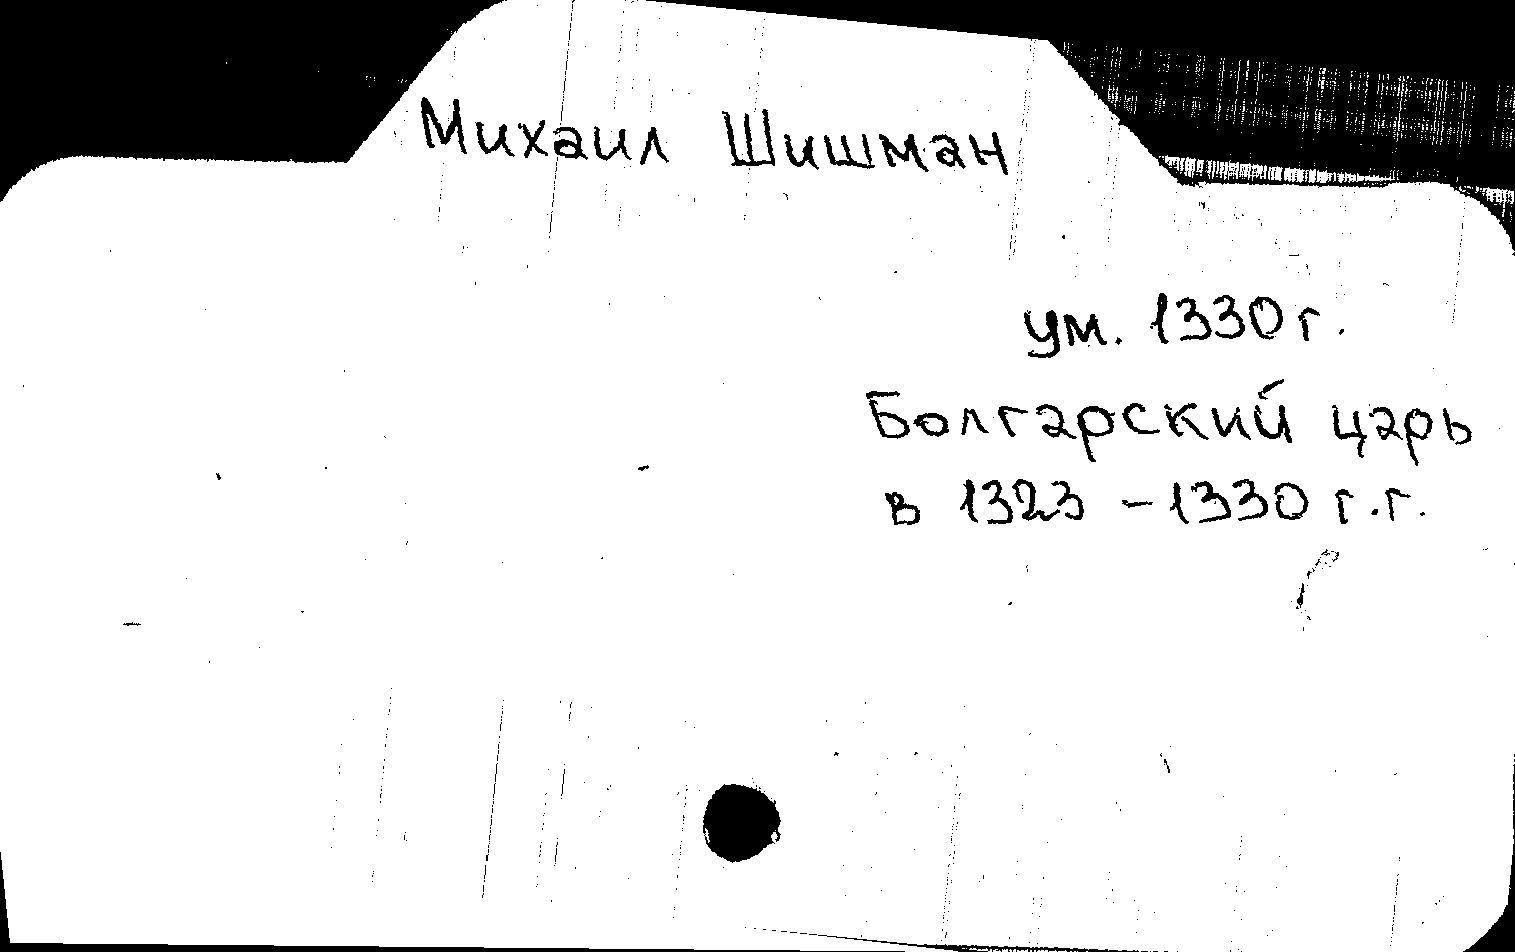 Михаил Шишман
ум. 1330 г.
Болгарский царь
в 1323 - 1330 г.г.